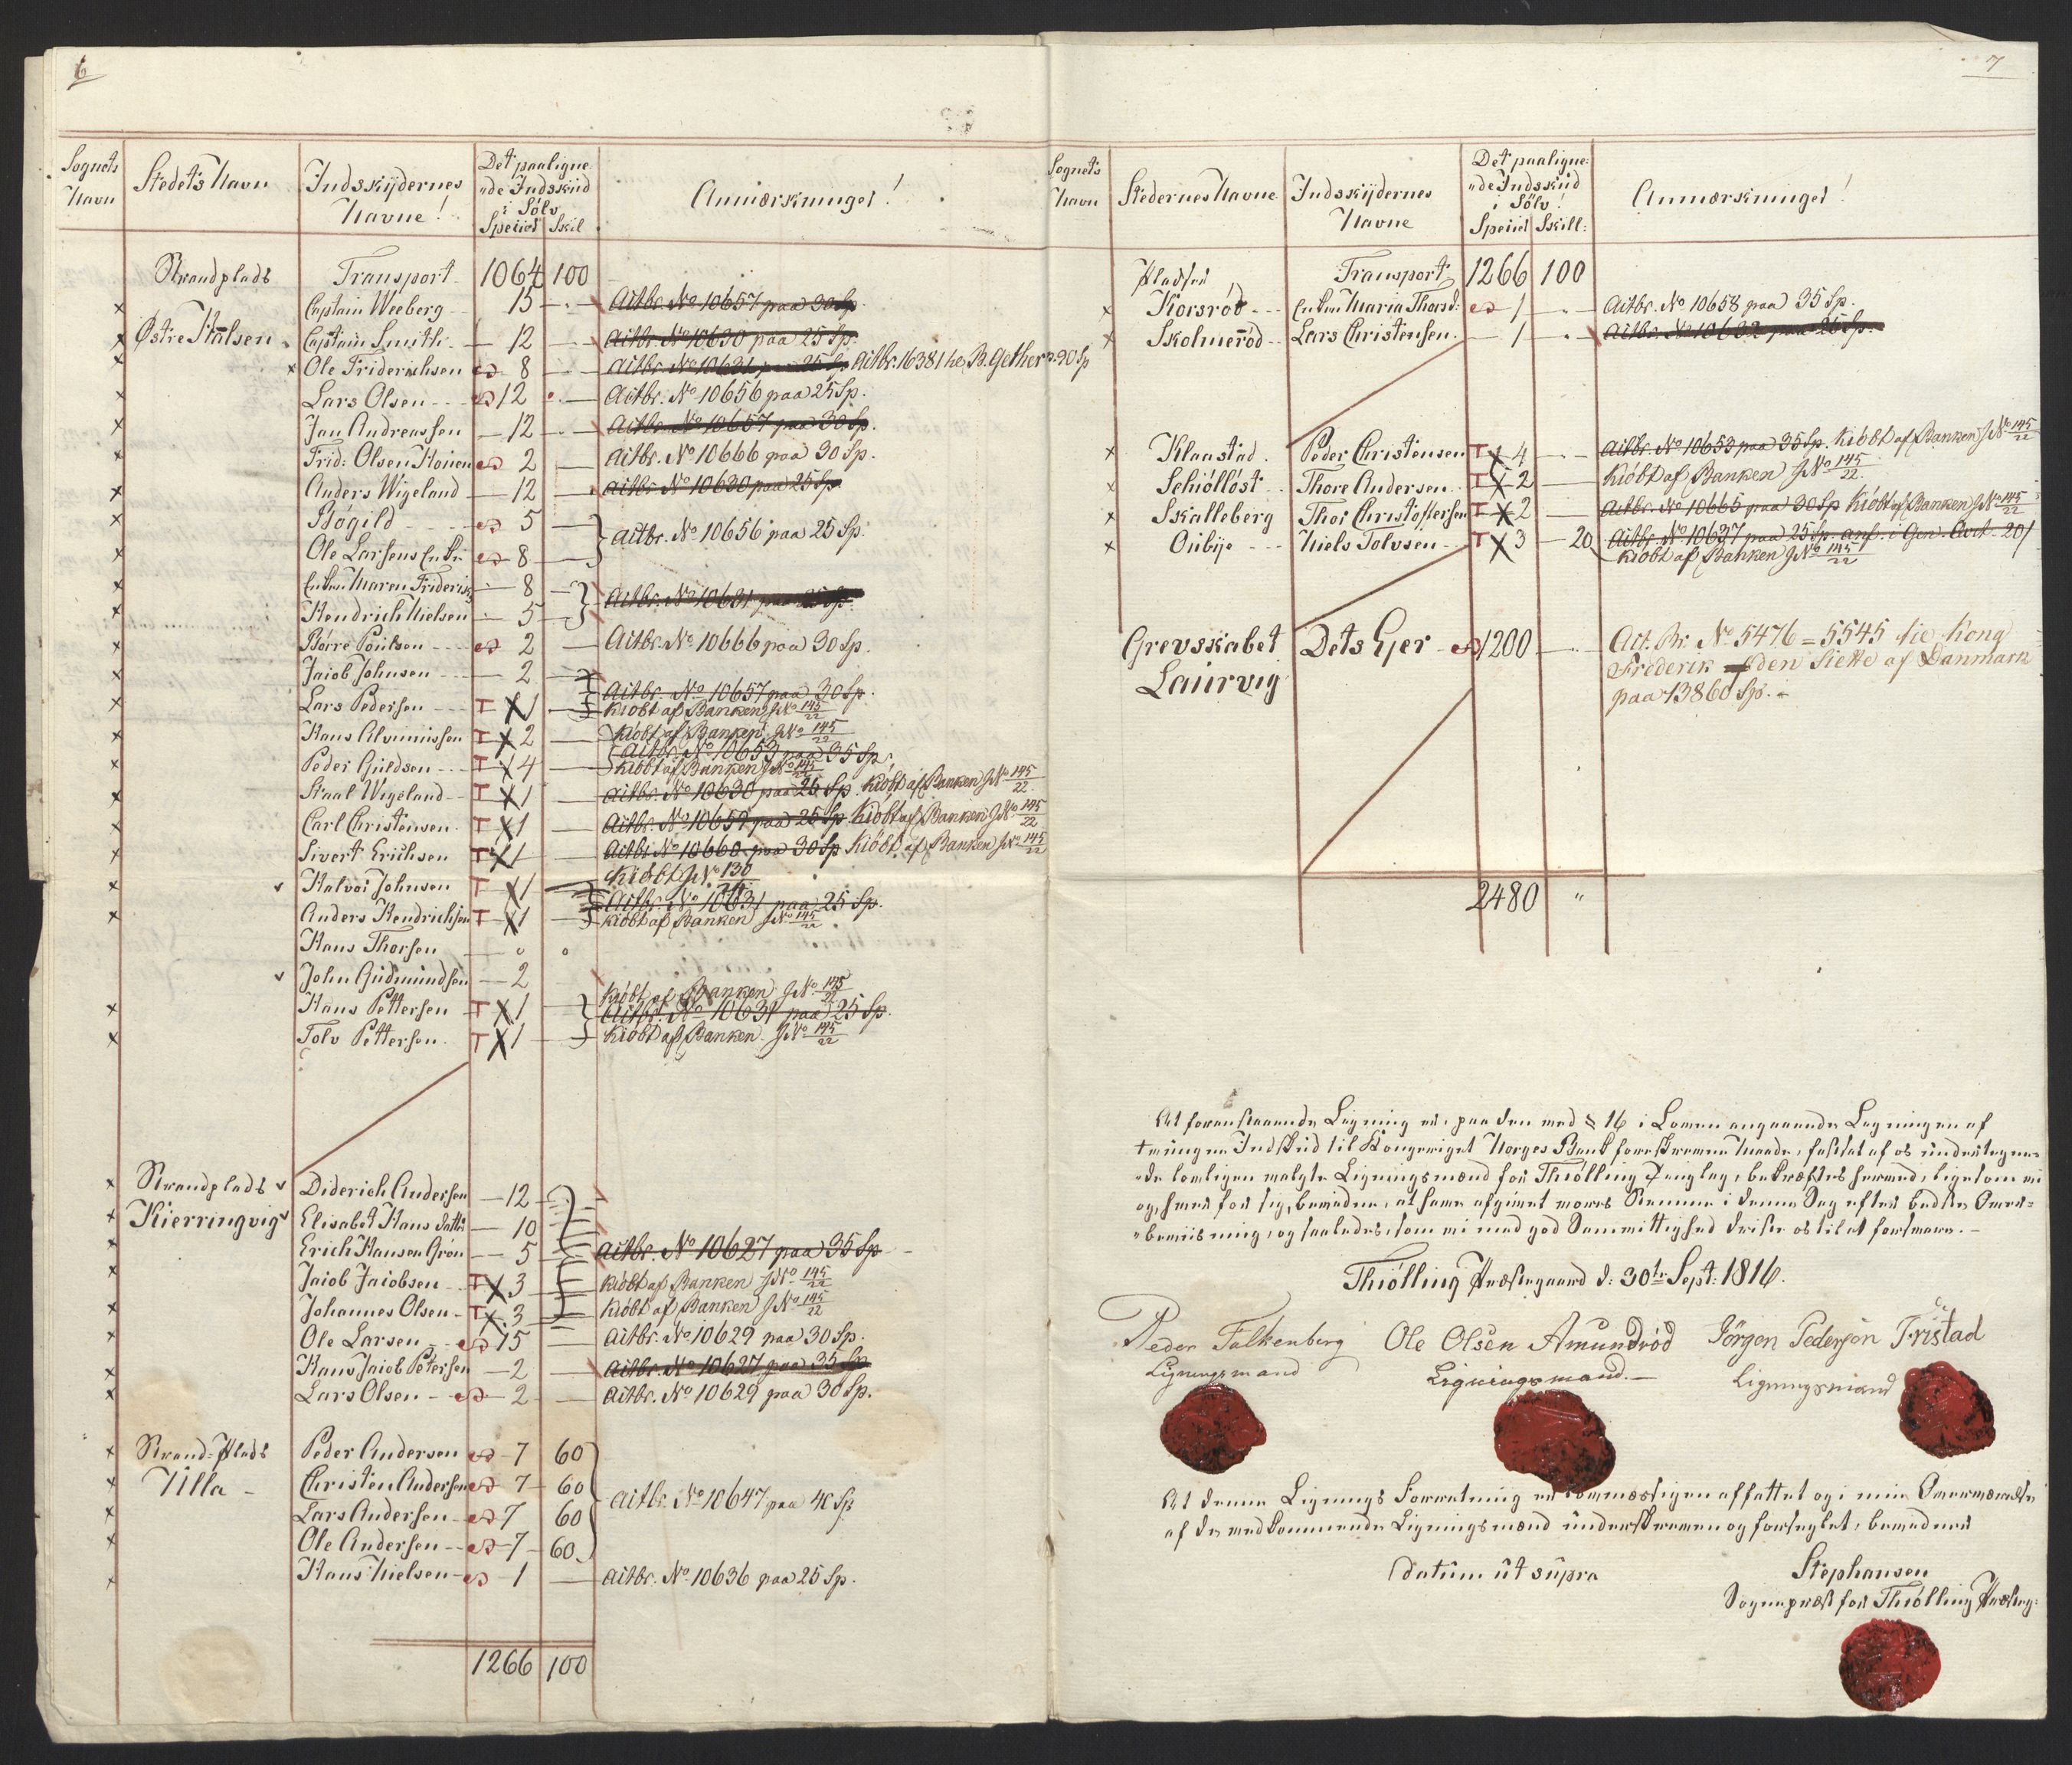 6
Sognets Navn | Stedets Navn | Indskydernes Navne! | Det paaligne-
nde Indskud
i Sölv
Specier | Skil | Anmærkninger!
Strandplads | Transport | 1064 | 100
x | Captain Weeberg | 15 | - | Actbr. No 10657 paa 30 Sp.
x Østre Halsen | Captain Smith | 12 | - | Actbr. No 10630 paa 25 Sp.
x | x Ole Friderichsen | 8 | - | Actbr. No 10631 paa 25 Sp. Actbr. 16381 B. Gether 30 Sp
x | Lars Olsen | 12 | - | Actbr. No 10656 paa 25 Sp.
x | Jan Andreassen | 12 | - | Actbr. No 10657 paa 30 Sp.
x | Frid: Olsen | 2 | - | Actbr. No 10666 paa 30 Sp.
x | Anders Wigeland | 12 | - | Actbr. No 10630 paa 25 Sp
x | Bögild | 5 | -
x | Ole Larsens Enke | 8 | - | Actbr. No 10656 paa 25 Sp.
x | Enken Maren Friderichs | 8 | -
x | Hendrich Nielsen | 5 | - | Actbr. No 10631 paa 25 Sp.
x | Börre | 2 | - | Actbr. No 10666 paa 30 Sp.
x | Jacob Johnsen | 2 | -
Actbr. No 10657 paa 30 Sp.
x | Lars Pedersen | T X 1 | - | Kiöbt af Banken JNo 145/22
x | Hans | T X 2 | - | Kiöbt af Banken JNo 145/22
Actbr. No 10653 paa 35 Sp.
x | Peder Guldsen | T X 4 | - | Kiöbt af Banken JNo 145/22
x | Staal Wigeland | T X 1 | - | Actbr. No 10630 paa 25 Sp. Kiöbt af Banken JNo 145/22
x | Carl Christensen | T X 1 | - | Actbr. No 10659 paa 25 Sp Kiöbt af Banken JNo 145/22
x | Sivert Erichsen | T X 1 | - | Actbr No 10660 paa 30 Sp Kiöbt af Banken JNo 145/22
x | v Halvor Johnsen | T X 1 | - | Kiöbt JNo 130
Actbr. No 10631 paa 25 Sp.
x | Anders Hendrichsen | T X 1 | - | Kiöbt af Banken JNo 145/22
Hans Thorsen | o | o
v John Gudmundsen | 2
Kiöbt af Banken JNo 145/22
x | Hans Pettersen | T X 1 | - | Actbr. No 10631 paa 25 Sp.
x | Tolv Pettersen | T X 1 | - | Kiöbt af Banken. JNo 145/22
x Strandplads v | Diderich Andersen | 12 | -
x Kierringvig v | Elisabet Hans Datter | 10 | -
x | Erich Hansen Grön | 5 | - | Actbr. No 10627 paa 35 Sp
x | Jacob Jacobsen | T X 3 | - | Kiöbt af Banken JNo 145/22
x | Johannes Olsen | T X 3 | - | Kiöbt af Banken JNo 145/22
x | Ole Larsen | 15 | - | Actbr. No 10629 paa 30 Sp.
x | Hans Jacob Petersen | 2 | - | Actbr. No 10627 paa 35 Sp
x | Lars Olsen | 2 | - | Actbr. No 10629 paa 30 Sp.
x Strand-Plads | Peder Andersen | 7 | 60
x Ulla | Christen Andersen | 7 | 60
x | Lars Andersen | 7 | 60 | Actbr. No 10647 paa 40 Sp
x | Ole Andersen | 7 | 60
x | Hans Nielsen | 1 | - | Actbr. No 10636 paa 25 Sp.
1266 | 100
7
Sognets Navn | Stedernes Navne | Indskydernes Navne | Det paaligne-
nde Indskud
i Sölv!
Specier | Skill: | Anmærkninger!
Pladsen | Transport | 1266 | 100
x Korsröd | Enken Maria Thorsd: | 1 | - | Actbr. No 10658 paa 35 Sp.
x Skolmeröd | Lars Christensen | 1 | - | Actbr. No 10632 paa 25 Sp.
x Klaastad | Peder Christensen | T X 4 | - | Actbr. No 10653 paa 35 Sp. Kiöbt af Banken JNo 145/22
x Schiöllöst | Thore Andersen | T X 2 | - | Kiöbt af Banken JNo 145/22
x Skalleberg | Thor Christofersen | T X 2 | - | Actbr. No 10665 paa 30 Sp Kiöbt af Banken JNo 145/22
x Oubye | Niels Tolvsen | T X 3 | 20 | Actbr. No 10637 paa 25 Sp. anf. i Gen. 20/
Kiöbt af Banken JNo 145/22
Grevskabet | Dets Eyer | 1200 | - | Act. Br. No 5476 = 5545 Kong
Laurvig | Frederik den Siette af Danmark
paa 13860 Sp.
2480 | "
At foranstaaende Ligning er, paa den ved § 16 i Loven angaaende Ligningen af
tvungne Indskud til Kongeriget Norges Bank foreskrevne Maade, fastsat af os undertegne-
de lovligen valgte Ligningsmænd for Thiölling Tinglag, bekræftes herved, ligesom vi
og, hver for sig, bevidne, at have afgivet vores Stemme i denne Sag efter bedste Over-
beviisning, og saaledes, som vi med god Samvittighed trøste os til at forsvare. -
Thiölling Præstegaard d: 30te Sept: 1816.
Peder Falkenberg | Ole Olsen Amundröd | Jörgen Pedersen Tristad
Ligningsmand | Ligningsmand. | Ligningsmand
At denne Lignings Forretning er lovmæssigen affattet og i min Overværelse
af de vedkommende Ligningsmænd underskreven og forseglet, bevidner
datum ut supra | Stephansen
Sognepræst for Thiölling Præsteg: